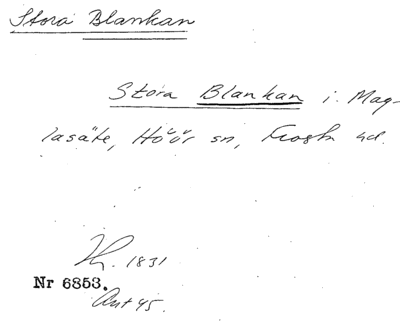 Stora Blankan
Stora Blankan i Mag-
lasäte, Höör sn, Frosta hd.
1831
Nr 6853.
Ant 45.